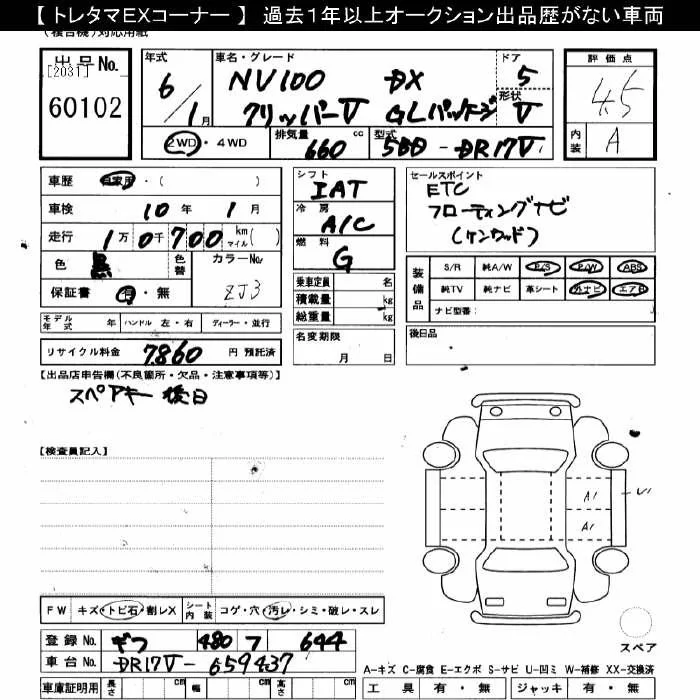 【 トレタマEXコーナー 】 過去1年以上オークション出品歴がない車両
出品No. [2031] 60102
年式 6/1月
車名・グレード NV100 DX
クリッパーV GLパッケージ
ドア 5
形状 V
評価点 4.5
内装 A
2WD・4WD 排気量 660 cc 型式 5BD-DR17V
車歴 自家用・( )
車検 10年 1月
走行 1万0千700 km マイル( )
色 黒 色替 カラーNo. ZJ3
保証書 有・無
シフト IAT
冷房 A/C
燃料 G
乗車定員 名
積載量 kg
総重量 kg
セールスポイント
ETC
フローティングナビ
(ケンウッド)
装備品 S/R 純A/W P/S P/W ABS
純TV 純ナビ 革シート 外ナビ エアB
ナビ型番:
モデル年式 年 ハンドル 左・右 ディーラー・並行
リサイクル料金 7860 円 預託済
名変期限 月 日
後日品
【出品店申告欄(不良箇所・欠品・注意事項等)】
スペアキー 後日
【検査員記入】
A1
A1
FW キズ・トビ石・割レX シート内装 コゲ・穴・汚レ・シミ・破レ・スレ
登録No. ギフ 480 フ 644
車台No. DR17V-659437
スペア
A-キズ C-腐食 E-エクボ S-サビ U-凹ミ W-補修 XX-交換済
車庫証明用 長さ cm 幅 cm 高さ cm
工具 有・無 ジャッキ 有・無